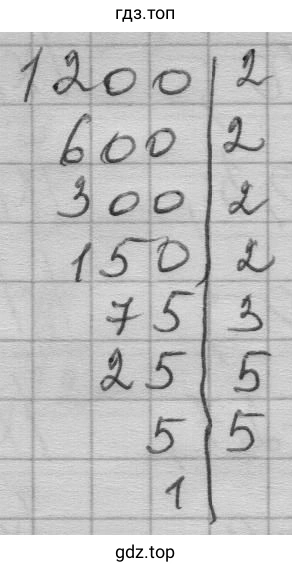 гдз.топ
1200 | 2
600 | 2
300 | 2
150 | 2
75 | 3
25 | 5
5 | 5
1 |
gdz.top